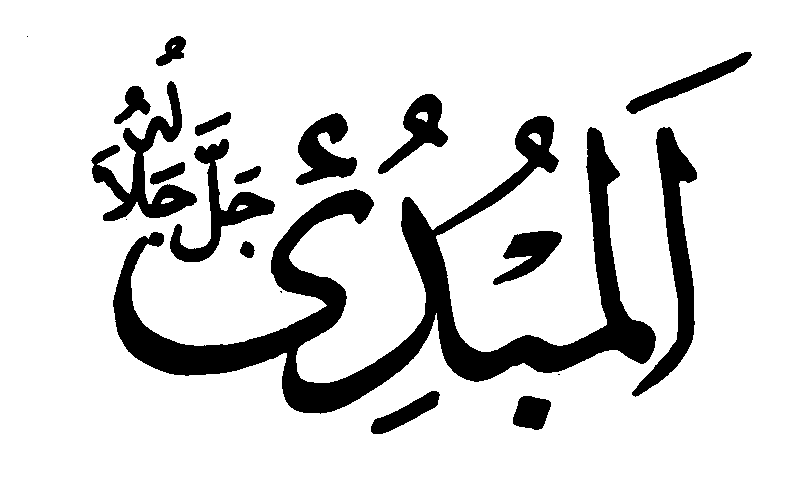 اَلْمُبْدِئُ جَلَّ جَلَالُهُ